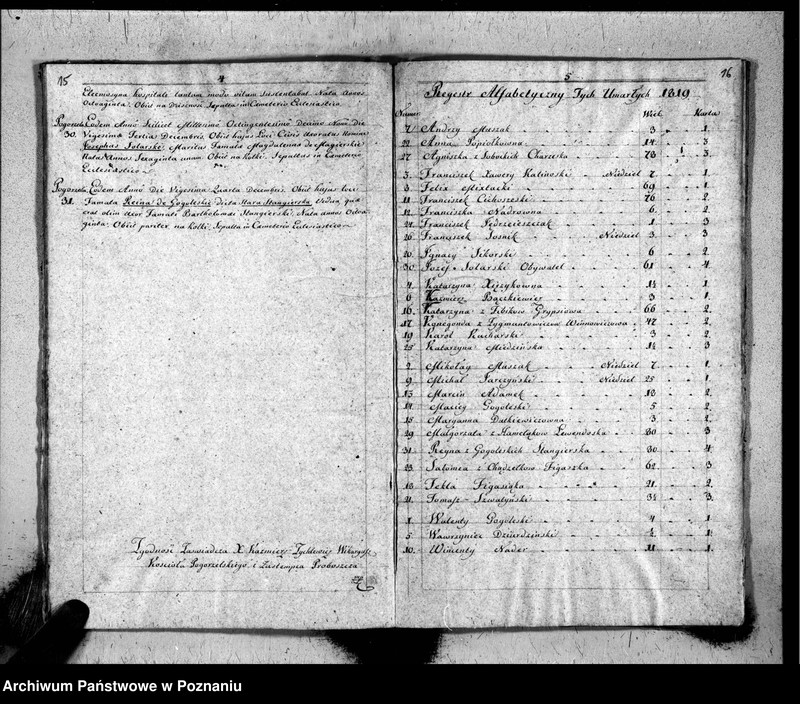 15
4
Eleemosyna hospitali tantum modo vitam sustentabat. Nata annos
Octoaginta. Obiit na Sepulta in Cemeterio Ecclesiastico
Pogorzela Eodem Anno Scilicet Millesimo Octingentesimo Decimo Nono die
30. Vigesima Tertia Decembris. Obiit hujas Loci Civis Uxoratus Nomine
Josephus Solarski Maritus Famata Magdalenna de
Natus Annos Sexaginta unum Obiit na Kolki. Sepultus in Cemeterio
Ecclesiastico
Pogorzela Eodem Anno Die Vigesima Quarta Decembris. Obiit hujas loci
31. Famata Reina de Gogoleskie dicta Stara Stangierska Vidua, quæ
erat olim Uxor Famati Bartholomei Stangierski, Nata annos Octo
ginta. Obiit pariter na Kolki. Sepulta in Cemeterio Ecclesiastico
Zgodność Zaswiadcza X Kazmierz Wikaryusz
Kosciola Pogorzelskiego i Zastempca Proboszcza
5
16
Regestr Alfabetyczny Tych Umarłych 1819
Numer Wiek Karta
7 Andrzy Maszak 3 1
22 Anna Popiolkowna 14 3
27 Agniszka z Sobockich 73 3
3 Franciszek Xawery Kalinoski Niedziel 7 1
8 Felix 69 1
11 Franciszek Cichoszeski 76 2
12 Franciszka Nadrowna 6 2
24 Franciszek 1 3
26 Franciszek Sosnik Niedziel 3 3
20 Ignacy Sikorski 6 2
30 Jozef Solarski Obywatel 61 4
4 Katarzyna Xiężykowna 1½ 1
6 Kazmierz Bączkiewicz 3 1
16 Katarzyna z Grypsiowa 66 2
17 Kunegonda z Zygmuntowiczow 47 2
19 Karol Kucharski 3 2
25 Katarzyna Miedzinska 1½ 3
2 Mikołay Maszak Niedziel 7 1
9 Michał Jarczyński Niedziel 25 1
13 Marcin Adamek 18 2
14 Maciey Gogoleski 5 2
15 Maryanna Dutkiewiczowna 3 2
29 Małgorzata z Lewendoska 80 3
31 Regna z Gogoleskich Stangierska 80 4
23 Salomea z Figaszka 62 3
18 Tekla Figasiąka 21 2
21 Tomasz Szwatyński 3½ 3
1 Walenty Gogoleski 4 1
5 Wawrzyniec Dziurdzinski ½ 1
10 Wincenty Nader 11 1
Archiwum Państwowe w Poznaniu